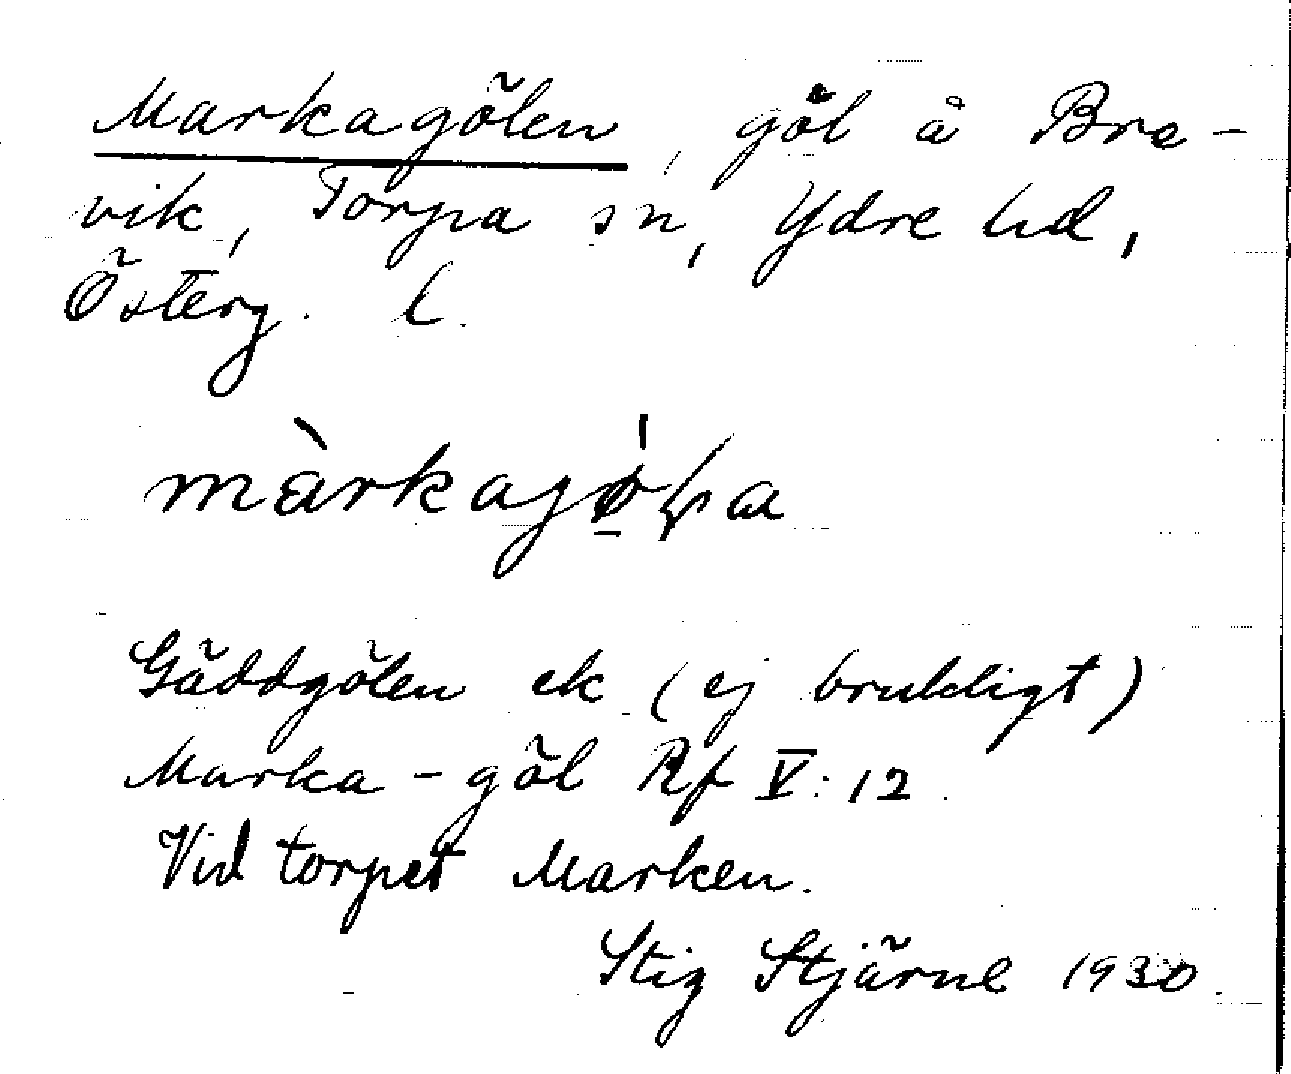 Markagölen, göl å Bre-
vik, Torpa sn, Ydre hd,
Österg. l.
Gäddgölen ek (ej brukligt)
Marka-göl Rf V:12.
Vid torpet Marken.
Stig Stjärne 1930.